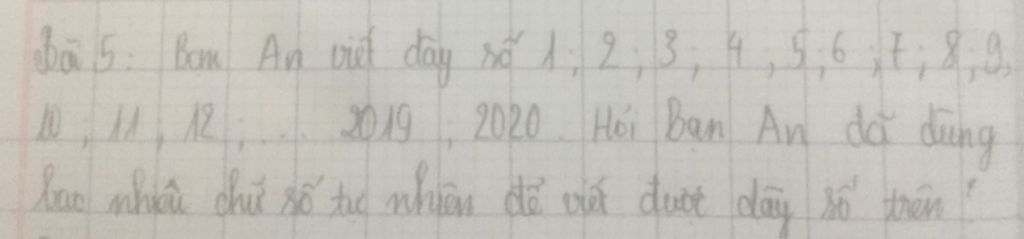 Bài 5: Bạn An viết dãy số 1; 2; 3; 4; 5; 6; 7; 8; 9;
10; 11; 12; ... 2019; 2020. Hỏi Bạn An đã dùng
bao nhiêu chữ số tự nhiên để viết được dãy số trên?